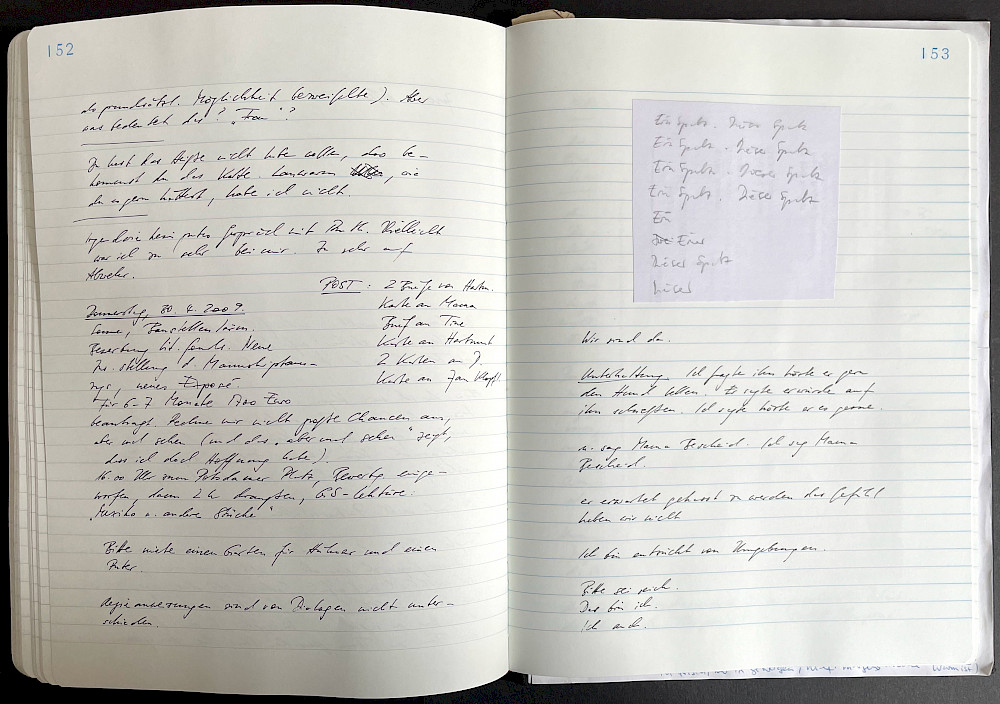 152
als grundsätzl. Möglichkeit bezweifelte). Aber
was bedeutet das? "Frau"?
Du hast das Heiße nicht haben wollen, also be-
kommst du das Kalte. Lauwarm, wie
du es gern hättest, habe ich nicht.
Irgendwie kein gutes Gespräch mit. Vielleicht
war ich zu sehr bei mir. Zu sehr auf
Abwehr.
POST: 2 Briefe von
Karte an Mama
Brief an Tine
Karte an Hartmut
2 Karten an J
Karte an Jan
Donnerstag, 30.4.2009.
Sonne, Baustellenlärm.
Bewerbung. Neue
Zs.stellung d.
neues Exposé
für 6-7 Monate 1700 Euro
beantragt. Rechne mir nicht große Chancen aus,
aber mal sehen (und das "aber mal sehen" zeigt,
dass ich doch Hoffnung habe)
16.00 Uhr zum Potsdamer Platz, Bewerbg einge-
worfen, dann 2 h draußen, GS-Lektüre:
"Mexiko u. andere Stücke"
Bitte miete einen Garten für Hühner und einen
Puter.
Regieanweisungen sind von Dialogen nicht unter-
schieden.
153
Ein Spatz. Dieser Spatz
Ein Spatz. Dieser Spatz
Ein Spatz. Dieser Spatz
Ein Spatz. Dieser Spatz
Ein
Einer
Dieser Spatz
Dieser
Wir sind da.
Unterhaltung. Ich fragte ihn hörte er gern
den Hund bellen. Er sagte er würde auf
ihn schießen. Ich sagte hörte er es gerne.
u. sag Mama Bescheid. Ich sag Mama
Bescheid.
er erwartet gehasst zu werden das Gefühl
haben wir nicht
Ich bin entzückt von Umgebungen.
Bitte sei reich.
Das bin ich.
Ich auch.